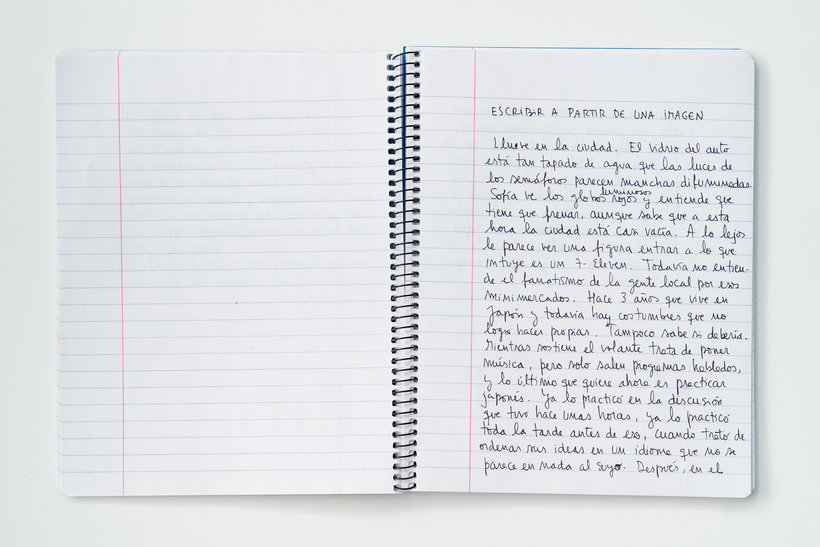 ESCRIBIR A PARTIR DE UNA IMAGEN
Llueve en la ciudad. El vidrio del auto
está tan tapado de agua que las luces de
los semáforos parecen manchas difuminadas.
Sofía ve los globos rojos luminosos y entiende que
tiene que frenar, aunque sabe que a esta
hora la ciudad está casi vacía. A lo lejos
le parece ver una figura entrar a lo que
intuye es un 7-Eleven. Todavía no entien-
de el fanatismo de la gente local por esos
minimercados. Hace 3 años que vive en
Japón y todavía hay costumbres que no
logra hacer propias. Tampoco sabe si debería.
Mientras sostiene el volante trata de poner
música, pero solo salen programas hablados,
y lo último que quiere ahora es practicar
japonés. Ya lo practicó en la discusión
que tuvo hace unas horas, ya lo practicó
toda la tarde antes de eso, cuando trató de
ordenar sus ideas en un idioma que no se
parece en nada al suyo. Después, en el